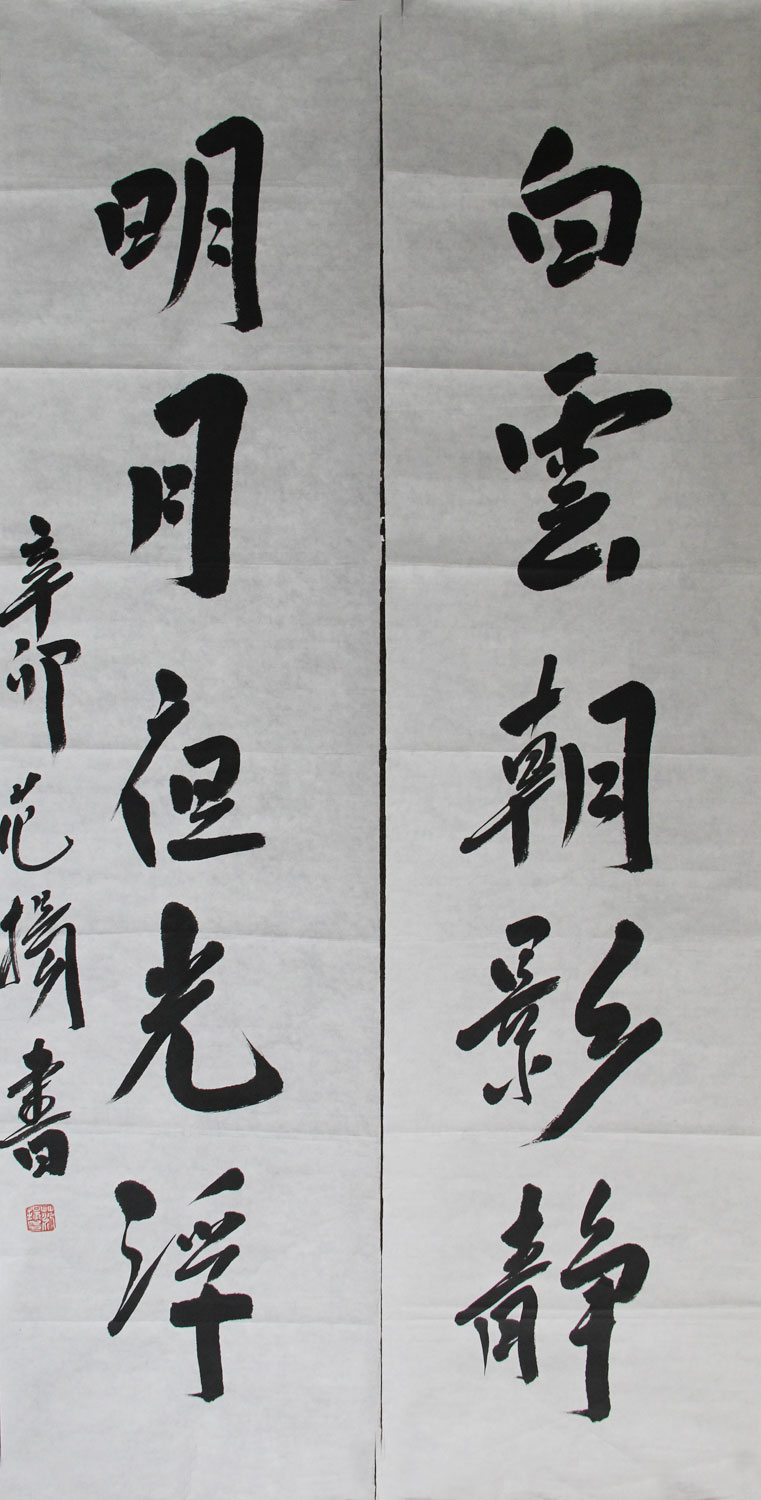 白雲朝影静
明月夜光浮
辛卯范书